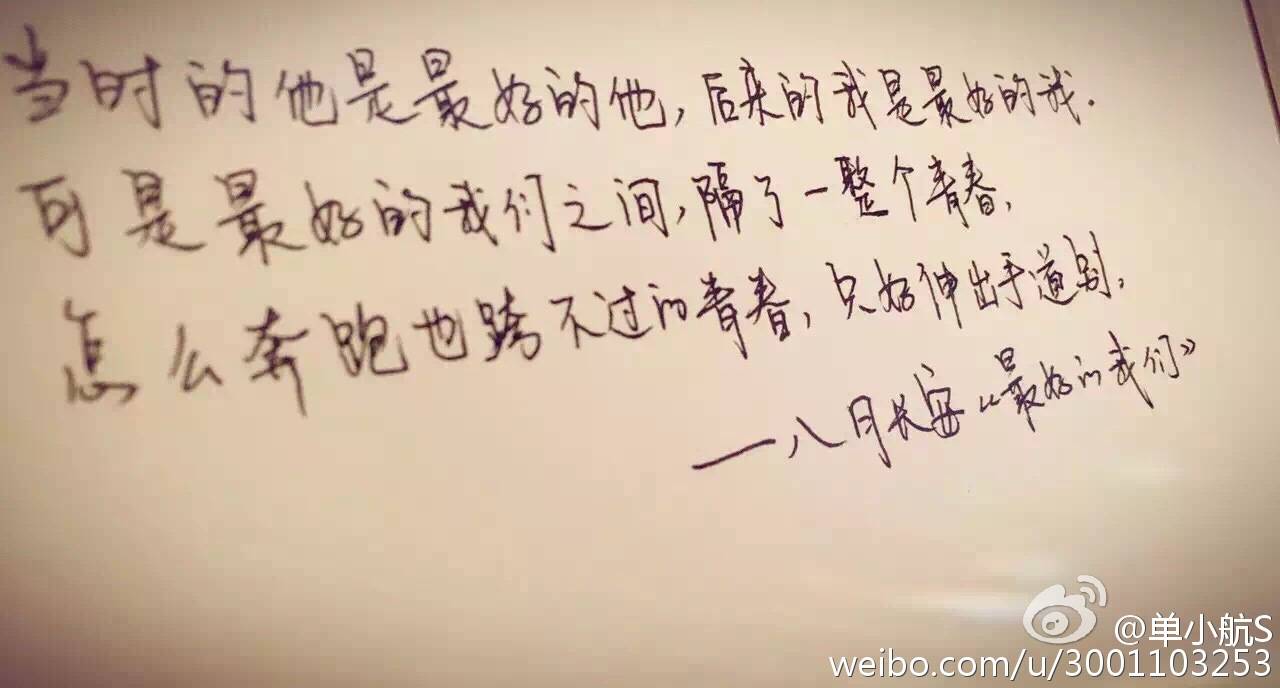 当时的他是最好的他,后来的我是最好的我.
可是最好的我们之间,隔了一整个青春,
怎么奔跑也跨不过的青春,只好伸出手道别.
——八月长安《最好的我们》
@单小航S
weibo.com/u/3001103253